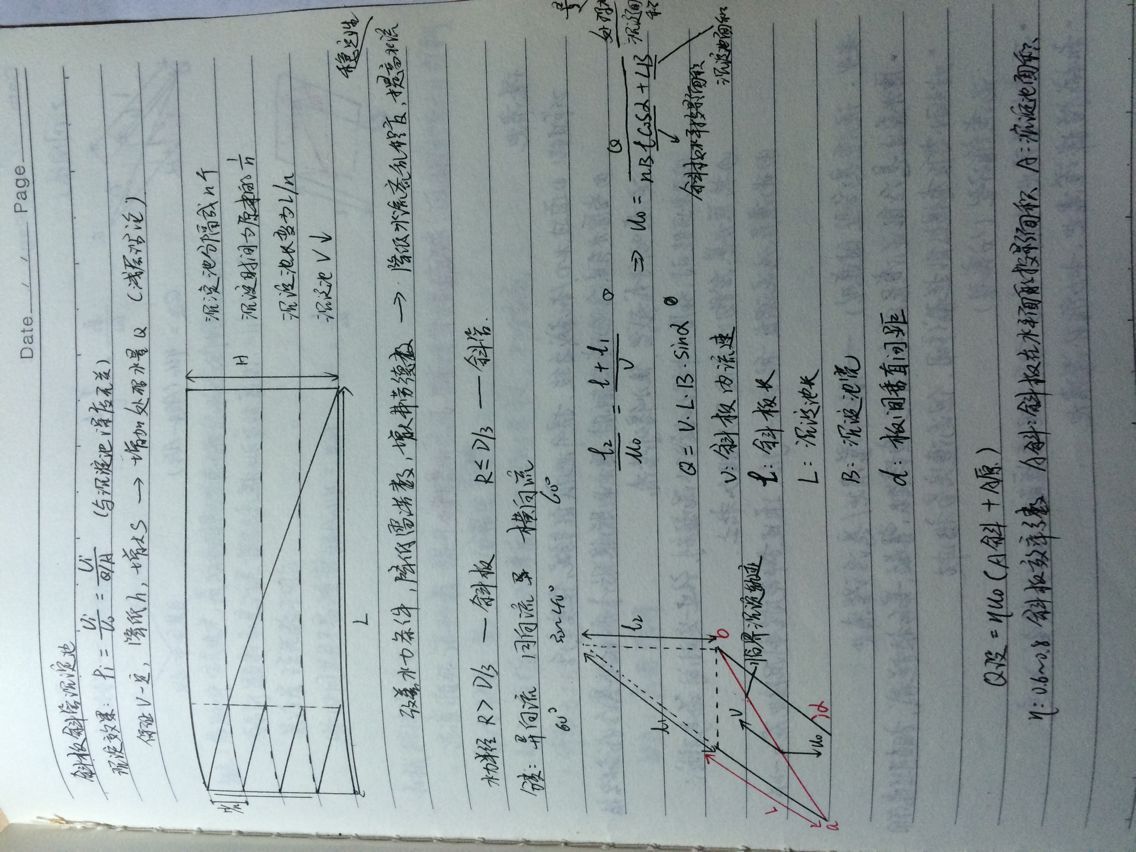 Date / / Page
斜板斜管沉淀池
沉淀效果: Pi = ui/u0 = ui/(Q/A) (与沉淀池深度无关)
保证V一定, 降低h, 增大S → 增加处理水量Q (浅层理论)
沉淀池分隔成n个
沉淀时间为原来的1/n
沉淀池长变为L/n
沉淀池V↓
H
L
改善水力条件, 降低雷诺数, 增大弗劳德数 → 降低水流紊乱程度, 提高水流稳定性
水力半径 R > D/3 — 斜板 R ≤ D/3 — 斜管.
分类: 异向流 同向流 横向流
60° 30~40° 60°
l2/u0 = (l+l1)/v ⇒ u0 = Q/(nBlcosα + LB)
斜板水平投影面积
沉淀池面积
Q = V·L·B·sinα
v: 斜板内流速
l: 斜板长
L: 沉淀池长
B: 沉淀池宽
d: 板间垂直间距
l1
l2
l
v
u0
α
a
b
临界沉淀轨迹
Q设 = ηu0(A斜 + A原)
η: 0.6~0.8 斜板效率系数 A斜: 斜板在水平面的投影面积 A: 沉淀池面积.